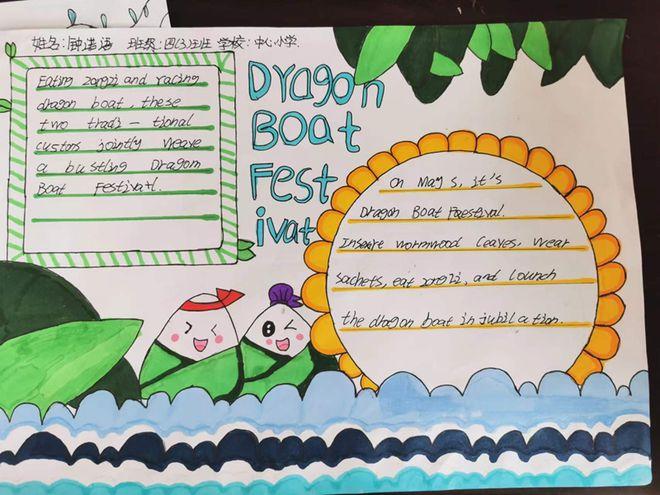 姓名:钟诺涵 班级:四(3)班 学校:中心小学.
Eating zongzi and racing
dragon boat, these
two tradi-tional
customs jointly weave
a bustling Dragon
Boat Festivatl.
Dragon
BOat
Fest
ivat
on May 5, it's
Dragon Boat Faestival.
Insert wormwood leaves, wear
sachets, eat zongzi, and lounch
the dragon boat in jubilation.